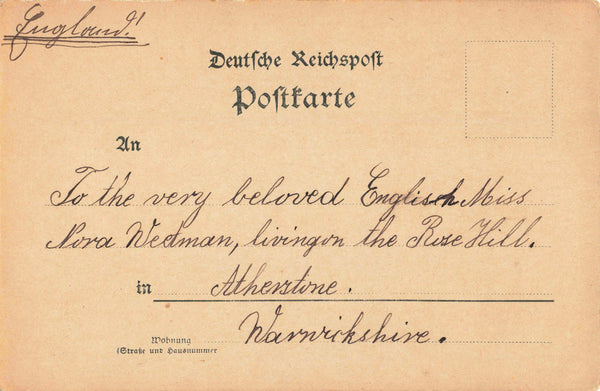 England!
Deutsche Reichspost
Postkarte
An
To the very beloved Englisch Miss
Nora Wedman, living on the Rose Hill.
in Atherstone.
Warwickshire.
Wohnung
(Straße und Hausnummer